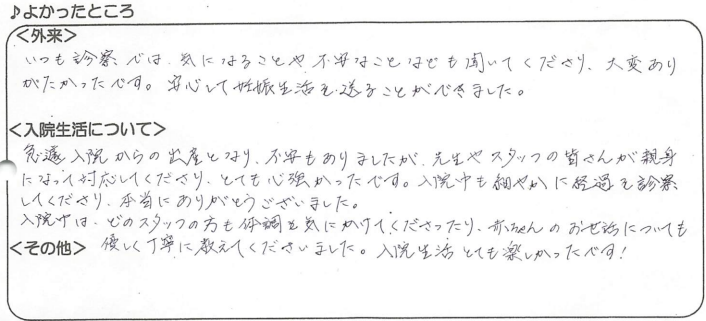 ♪よかったところ
<外来>
いつも診察では、気になることや不安なことなども聞いてくださり、大変あり
がたかったです。安心して妊娠生活を送ることができました。
<入院生活について>
急遽入院からの出産となり、不安もありましたが、先生やスタッフの皆さんが親身
になって対応してくださり、とても心強かったです。入院中も細やかに経過を診察
してくださり、本当にありがとうございました。
入院中は、どのスタッフの方も体調を気にかけてくださったり、赤ちゃんのお世話についても
<その他> 優しく丁寧に教えてくださいました。入院生活とても楽しかったです!